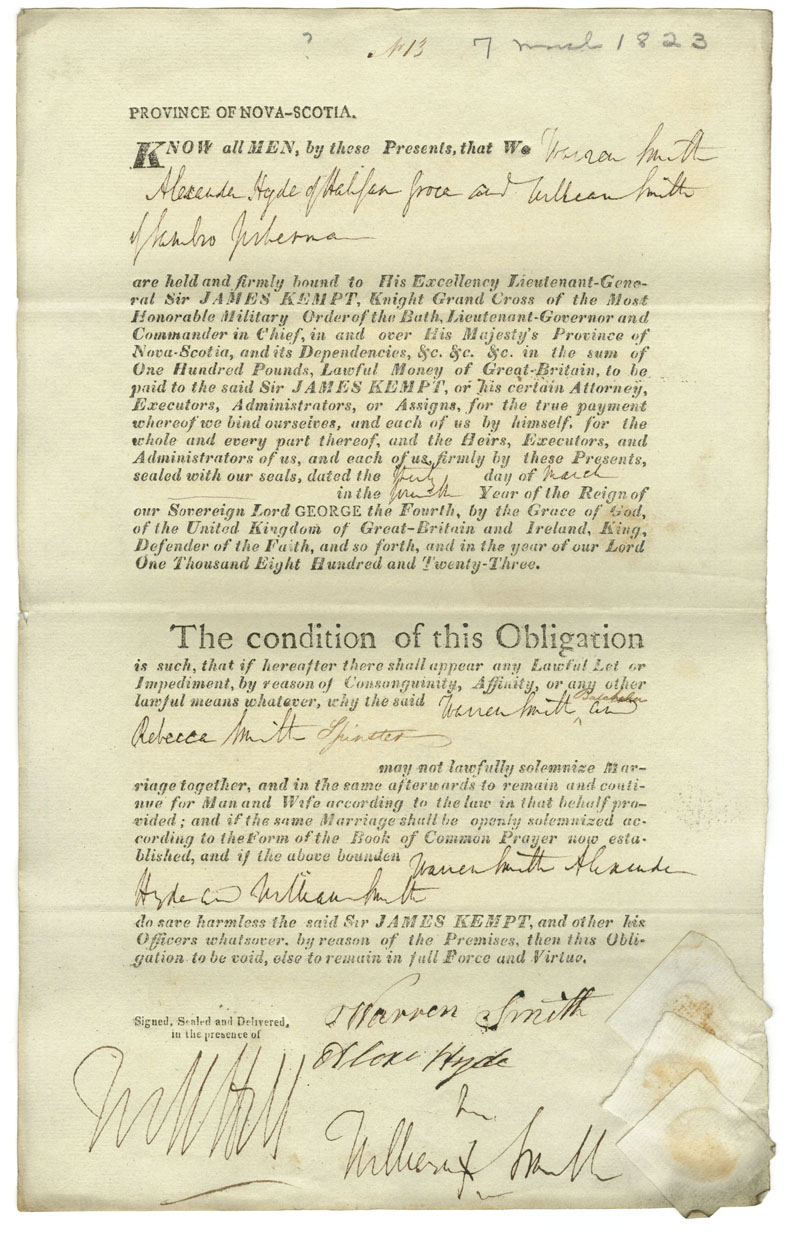 ?
7 March 1823
PROVINCE OF NOVA-SCOTIA.
KNOW all MEN, by these Presents, that We Warren Smith
Alexander Hyde of Halifax and William Smith
of Sambro
are held and firmly bound to His Excellency Lieutenant-Gene-
ral Sir JAMES KEMPT, Knight Grand Cross of the Most
Honorable Military Order of the Bath, Lieutenant-Governor and
Commander in Chief, in and over His Majesty's Province of
Nova-Scotia, and its Dependencies, &c. &c. &c. in the sum of
One Hundred Pounds, Lawful Money of Great-Britain, to be
paid to the said Sir JAMES KEMPT, or his certain Attorney,
Executors, Administrators, or Assigns, for the true payment
whereof we bind ourselves, and each of us by himself, for the
whole and every part thereof, and the Heirs, Executors, and
Administrators of us, and each of us, firmly by these Presents,
sealed with our seals, dated the day of March
in the fourth Year of the Reign of
our Sovereign Lord GEORGE the Fourth, by the Grace of God,
of the United Kingdom of Great-Britain and Ireland, King,
Defender of the Faith, and so forth, and in the year of our Lord
One Thousand Eight Hundred and Twenty-Three.
The condition of this Obligation
is such, that if hereafter there shall appear any Lawful Let or
Impediment, by reason of Consanguinity, Affinity, or any other
lawful means whatever, why the said Warren Smith Batchelor and
Rebecca Smith Spinster
may not lawfully solemnize Mar-
riage together, and in the same afterwards to remain and conti-
nue for Man and Wife according to the law in that behalf pro-
vided; and if the same Marriage shall be openly solemnized ac-
cording to the Form of the Book of Common Prayer now esta-
blished, and if the above bounden Warren Smith Alexander
Hyde and William Smith
do save harmless the said Sir JAMES KEMPT, and other his
Officers whatsover, by reason of the Premises, then this Obli-
gation to be void, else to remain in full Force and Virtue.
Signed, Sealed and Delivered,
in the presence of
Warren Smith
Alexr Hyde
William X Smith